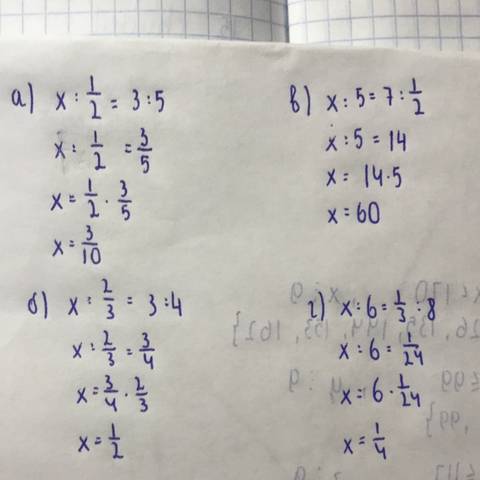 а) x : 1/2 = 3 : 5
x : 1/2 = 3/5
x = 1/2 · 3/5
x = 3/10
б) x : 2/3 = 3 : 4
x : 2/3 = 3/4
x = 3/4 · 2/3
x = 1/2
в) x : 5 = 7 : 1/2
x : 5 = 14
x = 14 · 5
x = 60
г) x : 6 = 1/3 : 8
x : 6 = 1/24
x = 6 · 1/24
x = 1/4